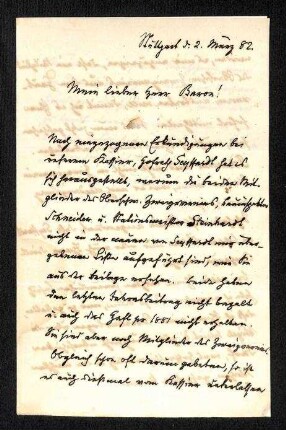 Stuttgart d. 2. März 82.
Mein lieber Herr Baron!
Nach eingezogenen Erkundigungen bei
unserem Kassier, Hofrath Seyffardt hat es
sich herausgestellt, warum die beiden Mit-
glieder des Zweigvereins,
Schneider u. Stationsmeister Steinhardt
nicht in der neuen von Seyffardt mir über-
gebenen Liste aufgeführt sind, wie Sie
aus der Beilage ersehen. Beide haben
den letzten Jahresbeitrag nicht bezahlt
u. auch das Heft pro 1881 nicht erhalten.
Sie sind aber noch Mitglieder des Zweigvereins.
Obgleich schon oft darum gebeten, so ist
es auch diesmal vom Kassier unterlassen